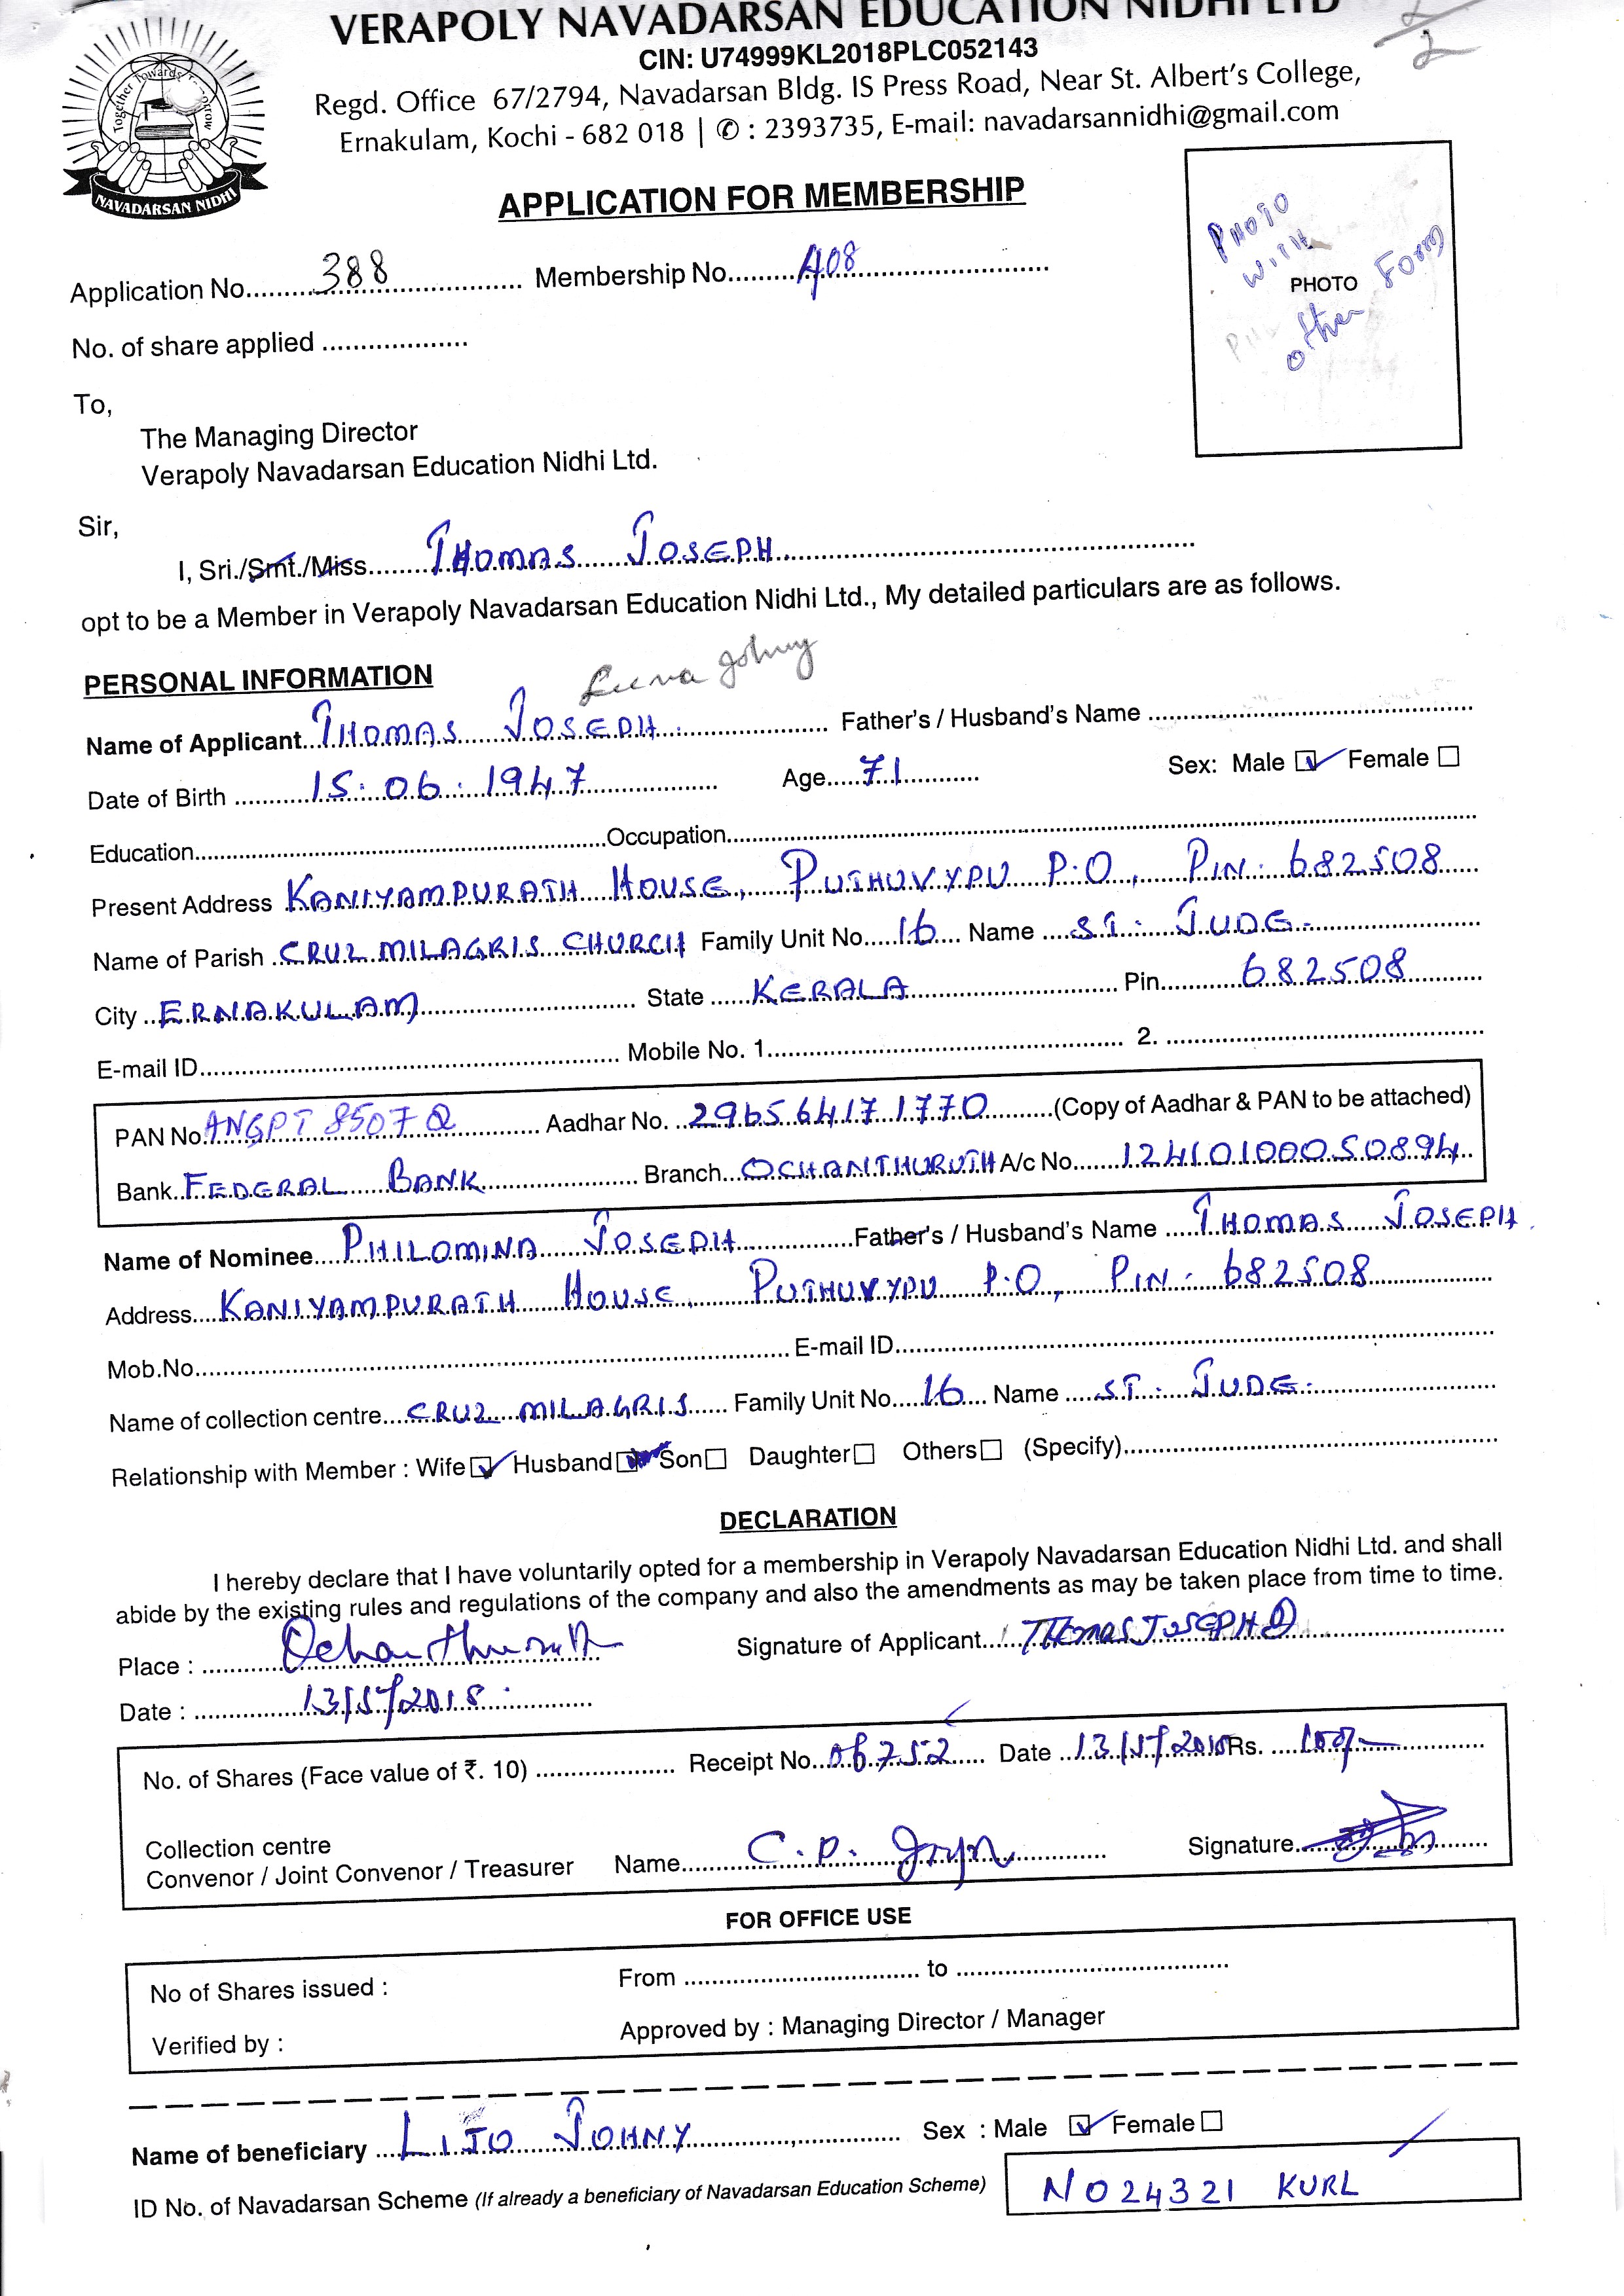 VERAPOLY NAVADARSAN EDUCATION NIDHI LTD
CIN: U74999KL2018PLC052143
Regd. Office 67/2794, Navadarsan Bldg. IS Press Road, Near St. Albert's College,
Ernakulam, Kochi - 682 018 | ✆ : 2393735, E-mail: navadarsannidhi@gmail.com
Together Towards
NAVADARSAN NIDHI
APPLICATION FOR MEMBERSHIP
PHOTO WITH Other Form
PHOTO
Application No. 388 Membership No. 408
No. of share applied
To,
The Managing Director
Verapoly Navadarsan Education Nidhi Ltd.
Sir,
I, Sri./Smt./Miss THOMAS JOSEPH
opt to be a Member in Verapoly Navadarsan Education Nidhi Ltd., My detailed particulars are as follows.
PERSONAL INFORMATION
Leena Johny
Name of Applicant THOMAS JOSEPH Father's / Husband's Name
Date of Birth 15.06.1947 Age 71 Sex: Male ☑ Female ☐
Education Occupation
Present Address KANIYAMPURATH HOUSE, PUTHUVYPU P.O, PIN: 682508
Name of Parish CRUZ MILAGRIS CHURCH Family Unit No. 16 Name ST. JUDE
City ERNAKULAM State KERALA Pin 682508
E-mail ID Mobile No. 1. 2.
PAN No. ANGPT 8507 Q Aadhar No. 296564171770 (Copy of Aadhar & PAN to be attached)
Bank FEDERAL BANK Branch OCHANTHURUTH A/c No. 12410100050894
Name of Nominee PHILOMINA JOSEPH Father's / Husband's Name THOMAS JOSEPH
Address KANIYAMPURATH HOUSE, PUTHUVYPU P.O, PIN: 682508
Mob.No. E-mail ID
Name of collection centre CRUZ MILAGRIS Family Unit No. 16 Name ST. JUDE
Relationship with Member : Wife ☑ Husband Son ☐ Daughter ☐ Others ☐ (Specify)
DECLARATION
I hereby declare that I have voluntarily opted for a membership in Verapoly Navadarsan Education Nidhi Ltd. and shall
abide by the existing rules and regulations of the company and also the amendments as may be taken place from time to time.
Place : Ochanthuruth Signature of Applicant THOMAS JOSEPH
Date : 13/5/2018
No. of Shares (Face value of ₹. 10) Receipt No. 06752 Date 13/5/2018 Rs. 100/-
Collection centre
Convenor / Joint Convenor / Treasurer Name C.P. Signature
FOR OFFICE USE
No of Shares issued : From to
Verified by : Approved by : Managing Director / Manager
Name of beneficiary LIJO JOHNY Sex : Male ☑ Female ☐
ID No. of Navadarsan Scheme (If already a beneficiary of Navadarsan Education Scheme) NO24321 KURL